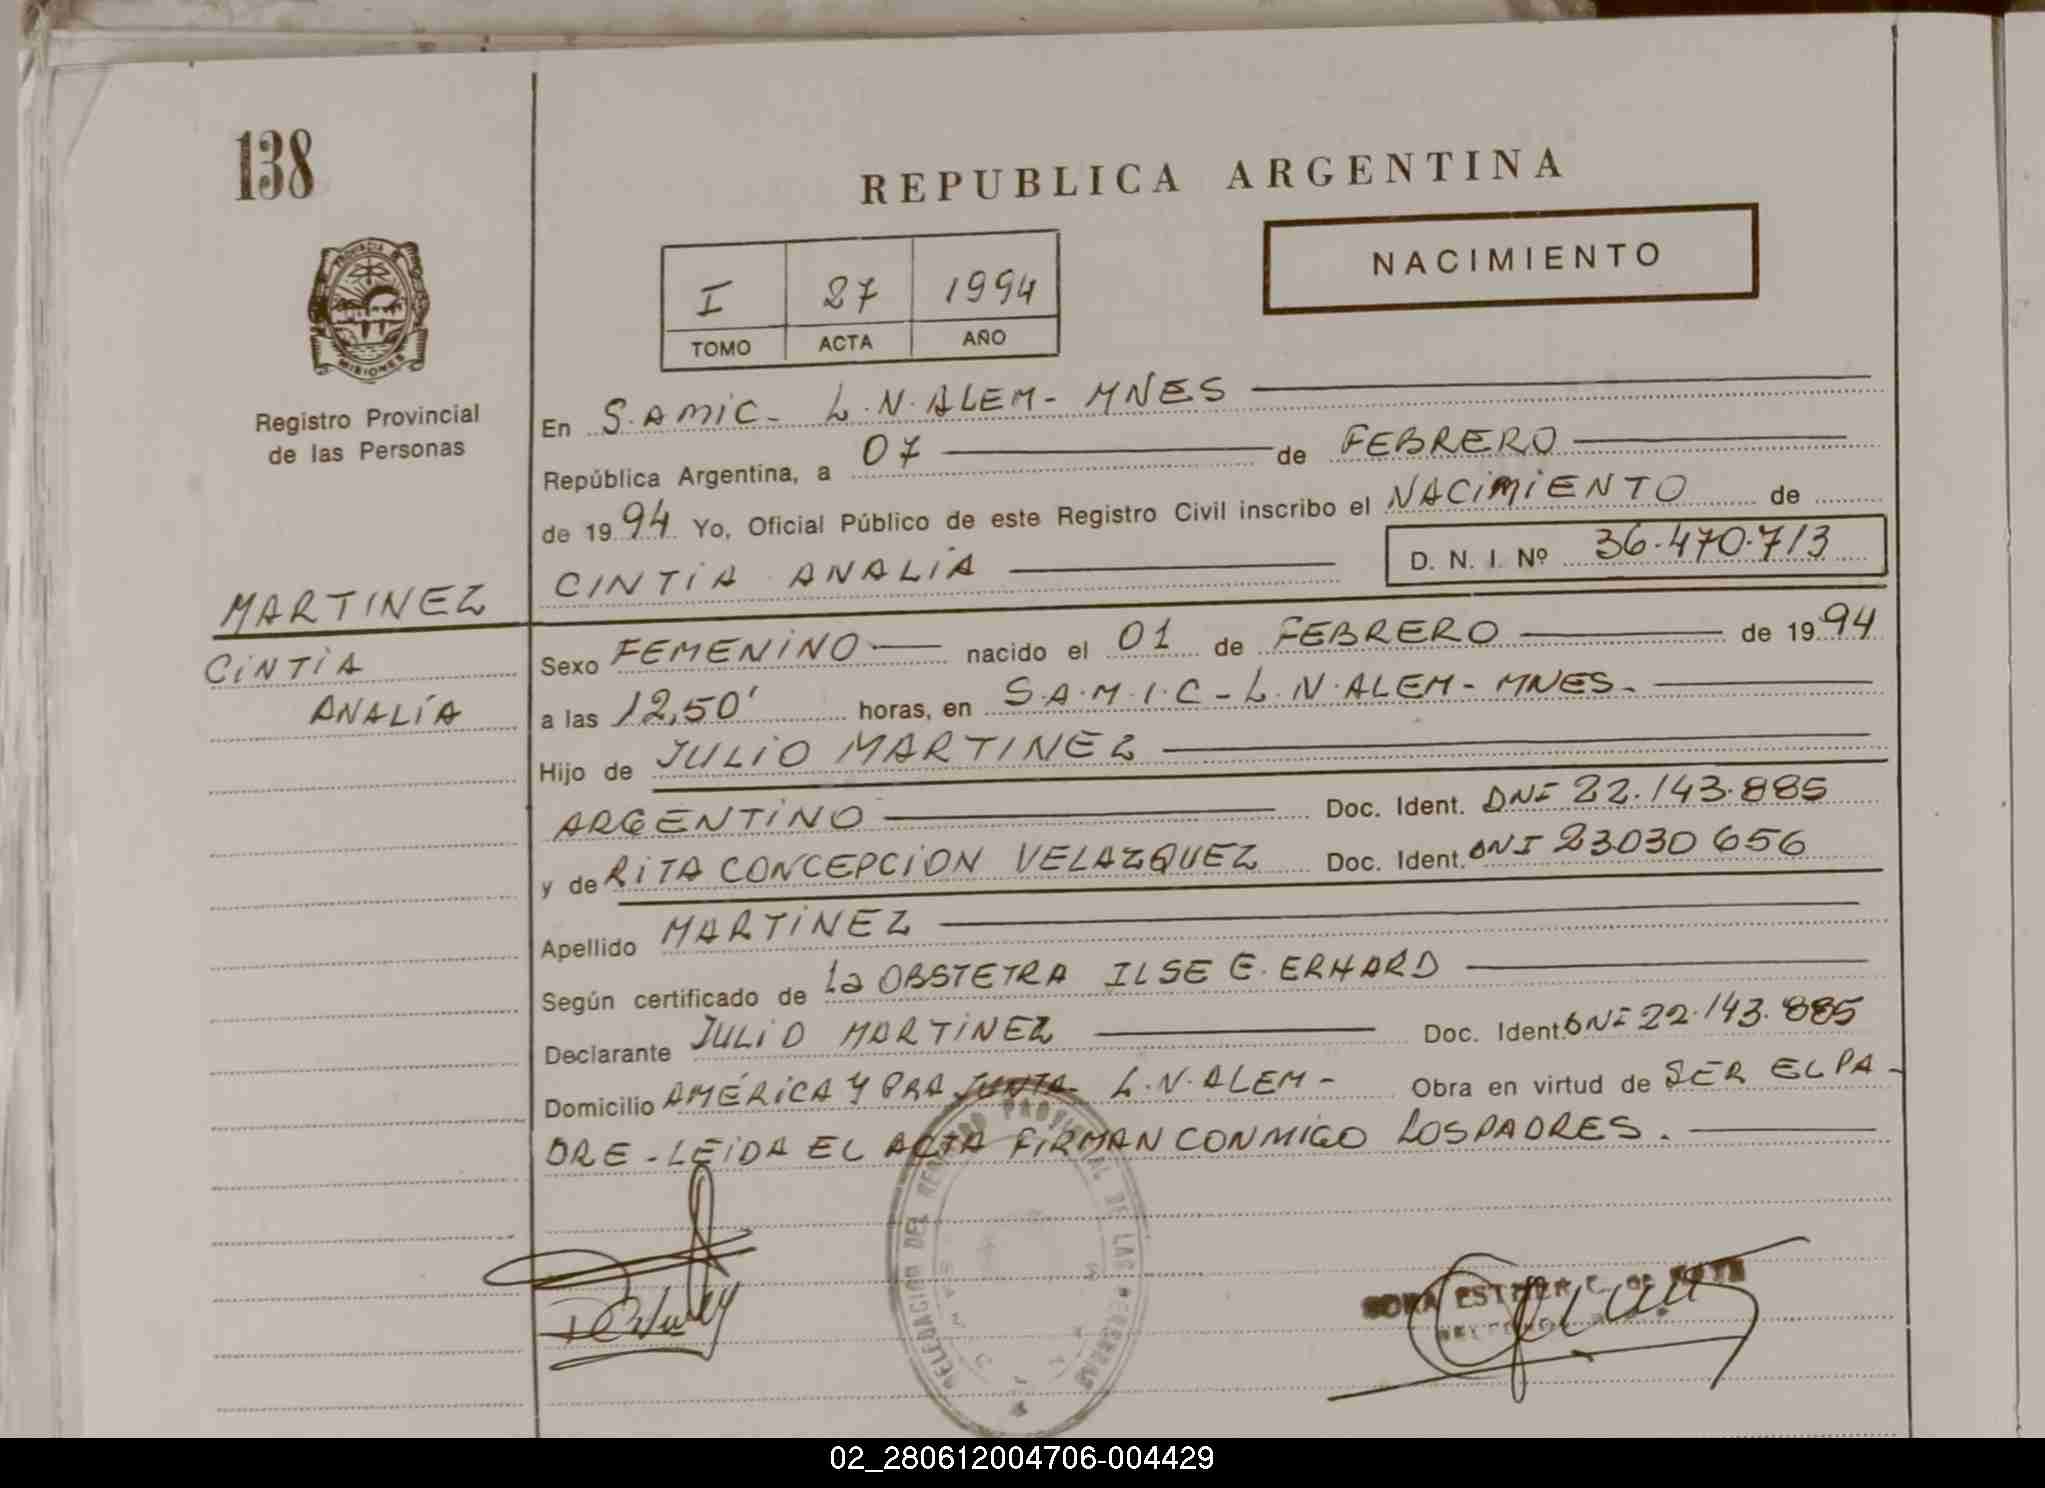 138
REPUBLICA ARGENTINA
NACIMIENTO
I 27 1994
TOMO ACTA AÑO
PROVINCIA
MISIONES
Registro Provincial
de las Personas
En S.AMIC- L.N.ALEM- MNES
República Argentina, a 07 de FEBRERO
de 1994 Yo, Oficial Público de este Registro Civil inscribo el NACIMIENTO de
CINTIA ANALIA D. N. I. Nº 36.470.713
MARTINEZ
CINTIA
ANALÍA
Sexo FEMENINO nacido el 01 de FEBRERO de 1994
a las 12,50' horas, en S.A.M.I.C-L.N.ALEM- MNES-
Hijo de JULIO MARTINEZ
ARGENTINO Doc. Ident. DNI 22.143.885
y de RITA CONCEPCION VELAZQUEZ Doc. Ident. DNI 23030656
Apellido MARTINEZ
Según certificado de La OBSTETRA ILSE E. ERHARD
Declarante JULIO MARTINEZ Doc. Ident. DNI 22.143.885
Domicilio AMÉRICA Y PRA JUNTA L.N.ALEM- Obra en virtud de SER EL PA-
DRE-LEIDA EL ACTA FIRMAN CONMIGO LOS PADRES.
DELEGACION DEL REGISTRO PROVINCIAL DE LAS PERSONAS
ESTHER
02_280612004706-004429